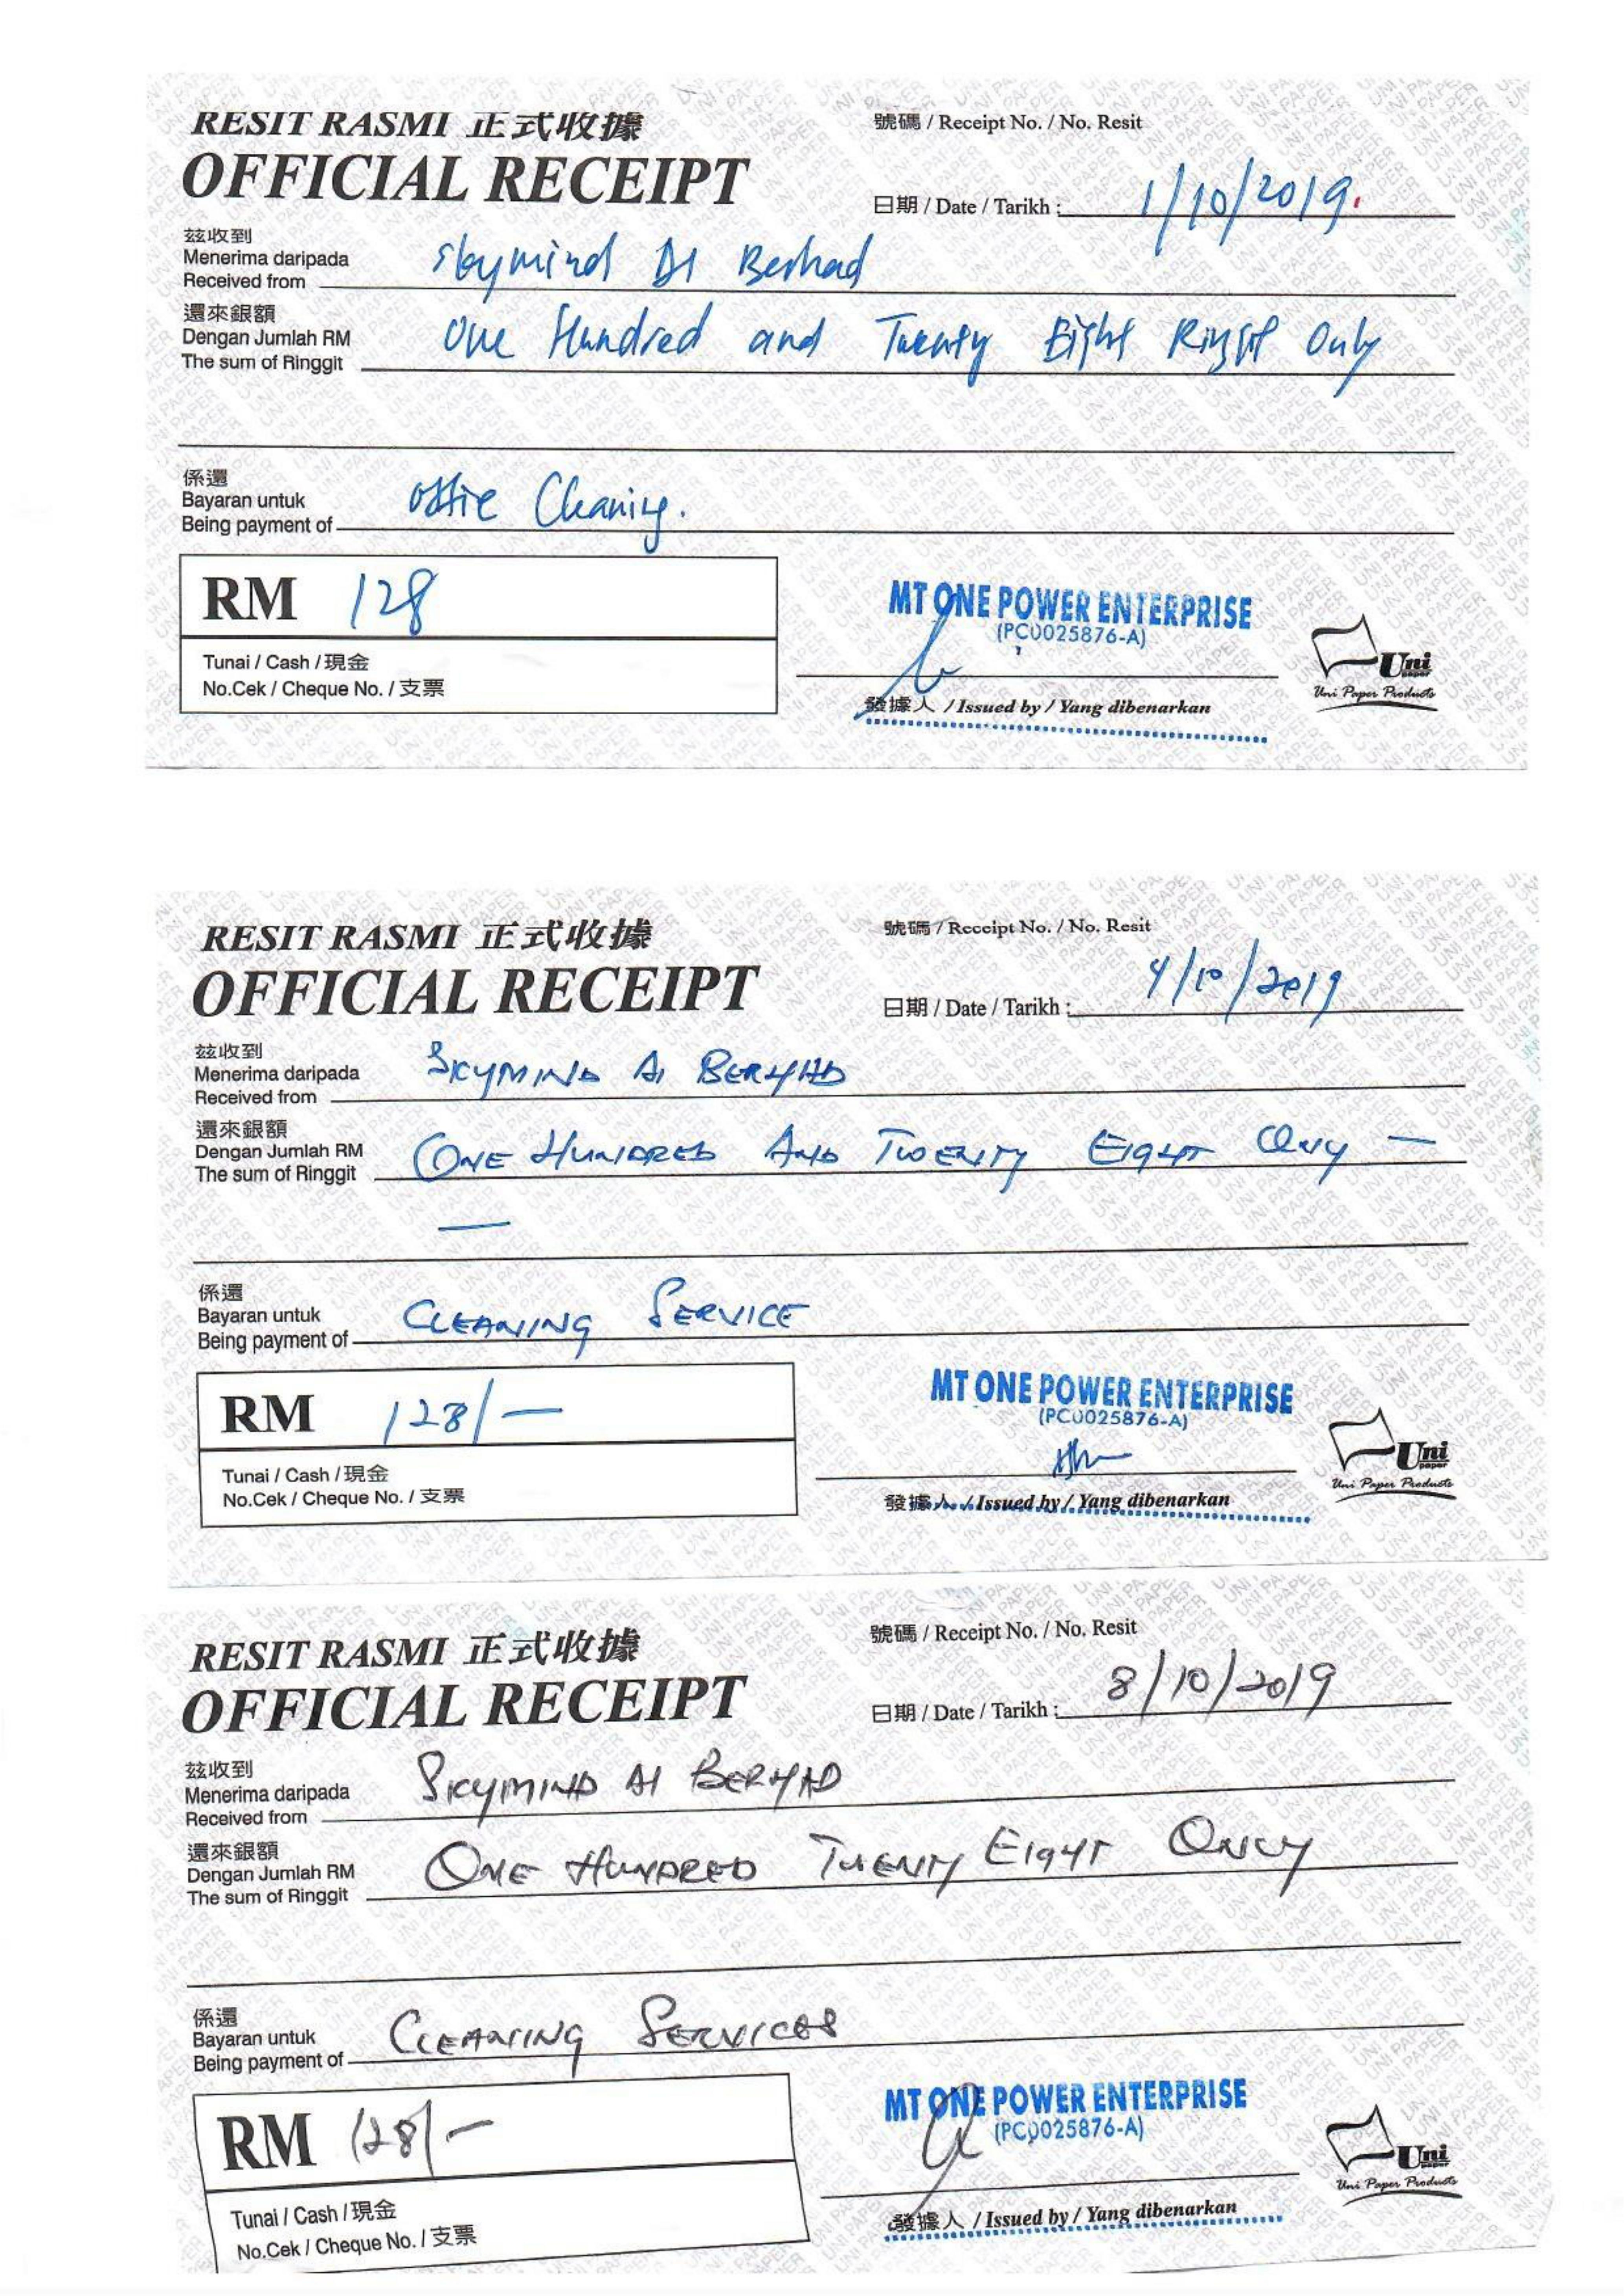 RESIT RASMI 正式收據
OFFICIAL RECEIPT
號碼 / Receipt No. / No. Resit
日期 / Date / Tarikh : 1/10/2019.
茲收到
Menerima daripada
Received from Skymind AI Berhad
還來銀額
Dengan Jumlah RM
The sum of Ringgit One Hundred and Twenty Eight Ringgit Only
係還
Bayaran untuk
Being payment of Office Cleaning.
RM 128
Tunai / Cash / 現金
No.Cek / Cheque No. / 支票
MT ONE POWER ENTERPRISE
(PC0025876-A)
發據人 / Issued by / Yang dibenarkan
Uni
paper
Uni Paper Products
RESIT RASMI 正式收據
OFFICIAL RECEIPT
號碼 / Receipt No. / No. Resit
日期 / Date / Tarikh : 4/10/2019
茲收到
Menerima daripada
Received from SKYMIND AI BERHAD
還來銀額
Dengan Jumlah RM
The sum of Ringgit ONE HUNDRED AND TWENTY EIGHT ONLY —
—
係還
Bayaran untuk
Being payment of CLEANING SERVICE
RM 128/—
Tunai / Cash / 現金
No.Cek / Cheque No. / 支票
MT ONE POWER ENTERPRISE
(PC0025876-A)
發據人 / Issued by / Yang dibenarkan
Uni
paper
Uni Paper Products
RESIT RASMI 正式收據
OFFICIAL RECEIPT
號碼 / Receipt No. / No. Resit
日期 / Date / Tarikh : 8/10/2019
茲收到
Menerima daripada
Received from SKYMIND AI BERHAD
還來銀額
Dengan Jumlah RM
The sum of Ringgit ONE HUNDRED TWENTY EIGHT ONLY
係還
Bayaran untuk
Being payment of CLEANING SERVICES
RM 128/-
Tunai / Cash / 現金
No.Cek / Cheque No. / 支票
MT ONE POWER ENTERPRISE
(PC0025876-A)
發據人 / Issued by / Yang dibenarkan
Uni
paper
Uni Paper Products